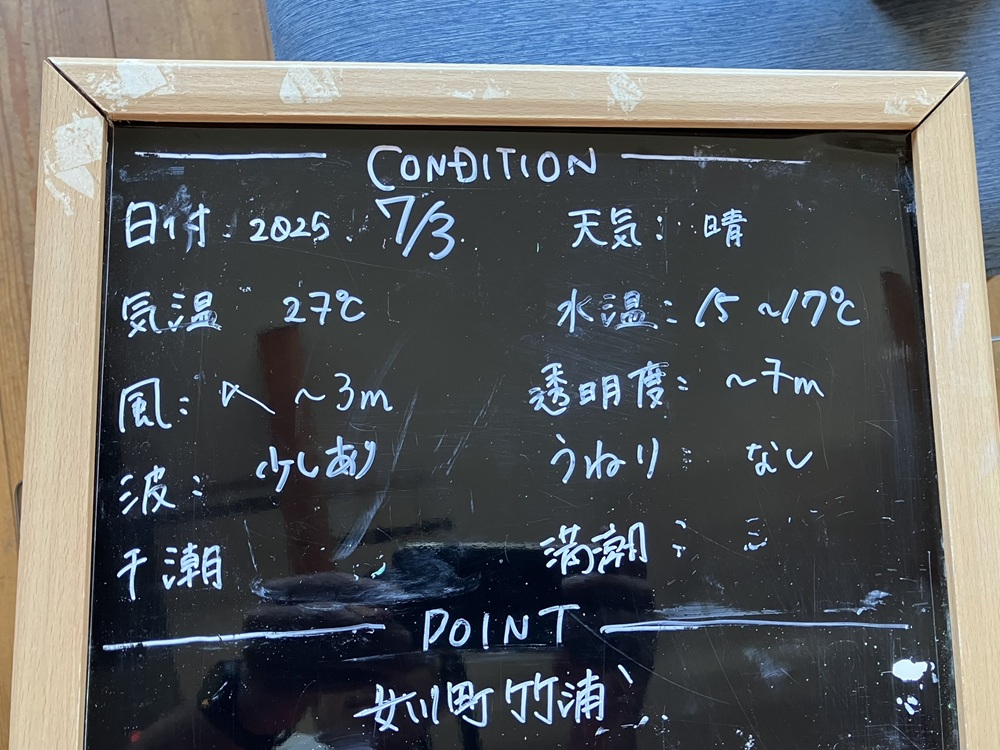 CONDITION
日付 2025. 7/3 天気: 晴
気温 27℃ 水温: 15 ~17℃
風: ~3m 透明度: ~7m
波: 少しあり うねり: なし
干潮 満潮:
POINT
女川町 竹浦